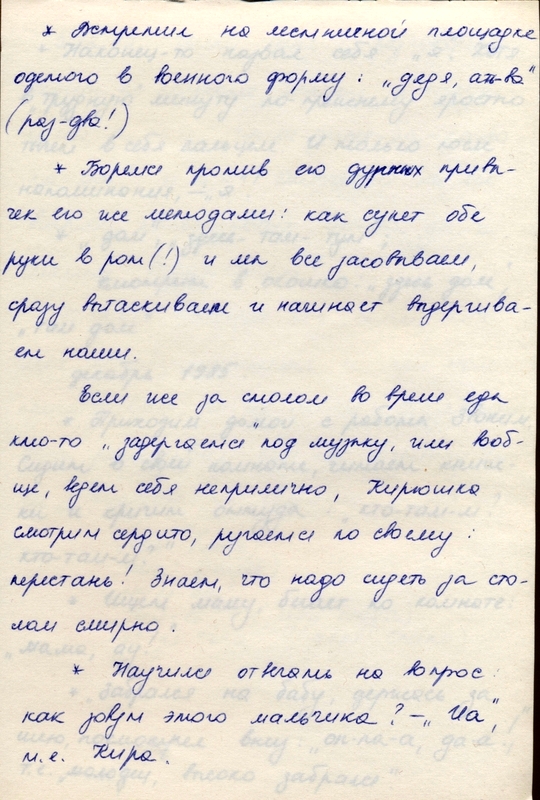 * Встретил на лестничной площадке
одетого в военного форму: „дедя, ат-ва"
(раз-два!)
* Боремся против его дурных привы-
чек его же методами: как сунет обе
руки в рот(!) и мы все засовываем,
сразу вытаскивает и начинает выдергива-
ет наши.
Если же за столом во время еды
кто-то „задергается" под музыку, или вооб-
ще, ведет себя неприлично, Кирюшка
смотрит сердито, ругается по своему:
перестань! Знает, что надо сидеть за сто-
лом смирно.
* Научился отвечать на вопрос:
как зовут этого мальчика? – „Иа",
т.е. Кира.